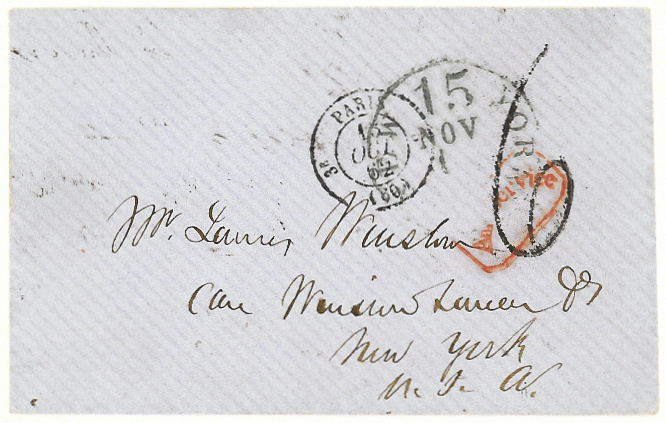 PARIS
(60)
15
NOV
NEW YORK
Mr. Lanier Winslow
Care Winslow Lanier & Co
New York
U. S. A.